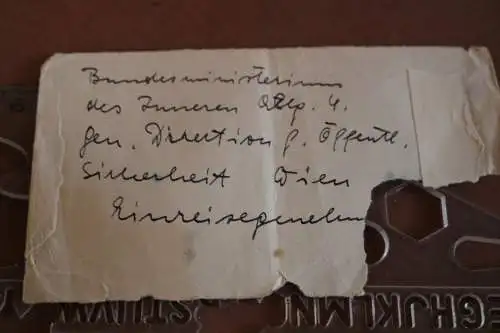 Bundesministerium
des Inneren Abtlg. 4.
gen. Direktion f. Öffentl.
Sicherheit Wien
Einreisegenehm
STUVW
GHJKLMN